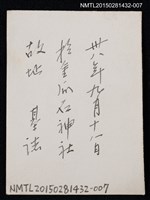 NMTL20150281432-007
卅八年九月十一日
於金瓜石神社
故址 基法
NMTL20150281432-007